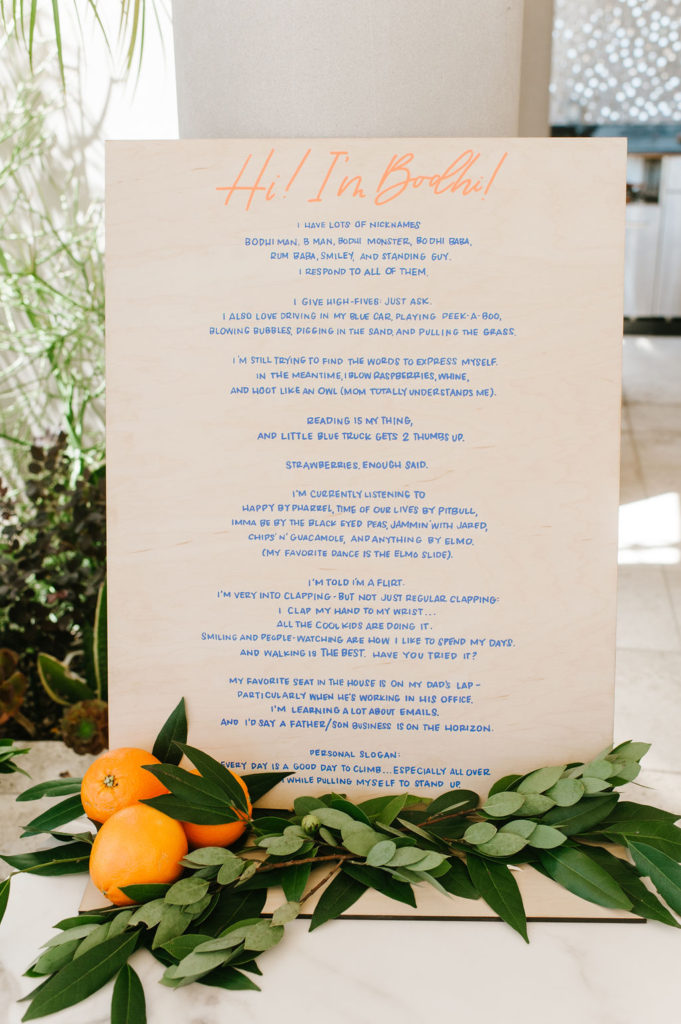 Hi! I'm Bodhi!
I HAVE LOTS OF NICKNAMES
BODHI MAN, B MAN, BODHI MONSTER, BODHI BABA,
RUM BABA, SMILEY, AND STANDING GUY.
I RESPOND TO ALL OF THEM.
I GIVE HIGH-FIVES: JUST ASK.
I ALSO LOVE DRIVING IN MY BLUE CAR, PLAYING PEEK-A-BOO,
BLOWING BUBBLES, DIGGING IN THE SAND, AND PULLING THE GRASS.
I'M STILL TRYING TO FIND THE WORDS TO EXPRESS MYSELF.
IN THE MEANTIME, I BLOW RASPBERRIES, WHINE,
AND HOOT LIKE AN OWL (MOM TOTALLY UNDERSTANDS ME).
READING IS MY THING,
AND LITTLE BLUE TRUCK GETS 2 THUMBS UP.
STRAWBERRIES. ENOUGH SAID.
I'M CURRENTLY LISTENING TO
HAPPY BY PHARREL, TIME OF OUR LIVES BY PITBULL,
IMMA BE BY THE BLACK EYED PEAS, JAMMIN' WITH JARED,
CHIPS 'N' GUACAMOLE, AND ANYTHING BY ELMO.
(MY FAVORITE DANCE IS THE ELMO SLIDE).
I'M TOLD I'M A FLIRT.
I'M VERY INTO CLAPPING - BUT NOT JUST REGULAR CLAPPING:
I CLAP MY HAND TO MY WRIST...
ALL THE COOL KIDS ARE DOING IT.
SMILING AND PEOPLE-WATCHING ARE HOW I LIKE TO SPEND MY DAYS.
AND WALKING IS THE BEST. HAVE YOU TRIED IT?
MY FAVORITE SEAT IN THE HOUSE IS ON MY DAD'S LAP -
PARTICULARLY WHEN HE'S WORKING IN HIS OFFICE.
I'M LEARNING A LOT ABOUT EMAILS.
AND I'D SAY A FATHER/SON BUSINESS IS ON THE HORIZON.
PERSONAL SLOGAN:
EVERY DAY IS A GOOD DAY TO CLIMB... ESPECIALLY ALL OVER
WHILE PULLING MYSELF TO STAND UP.